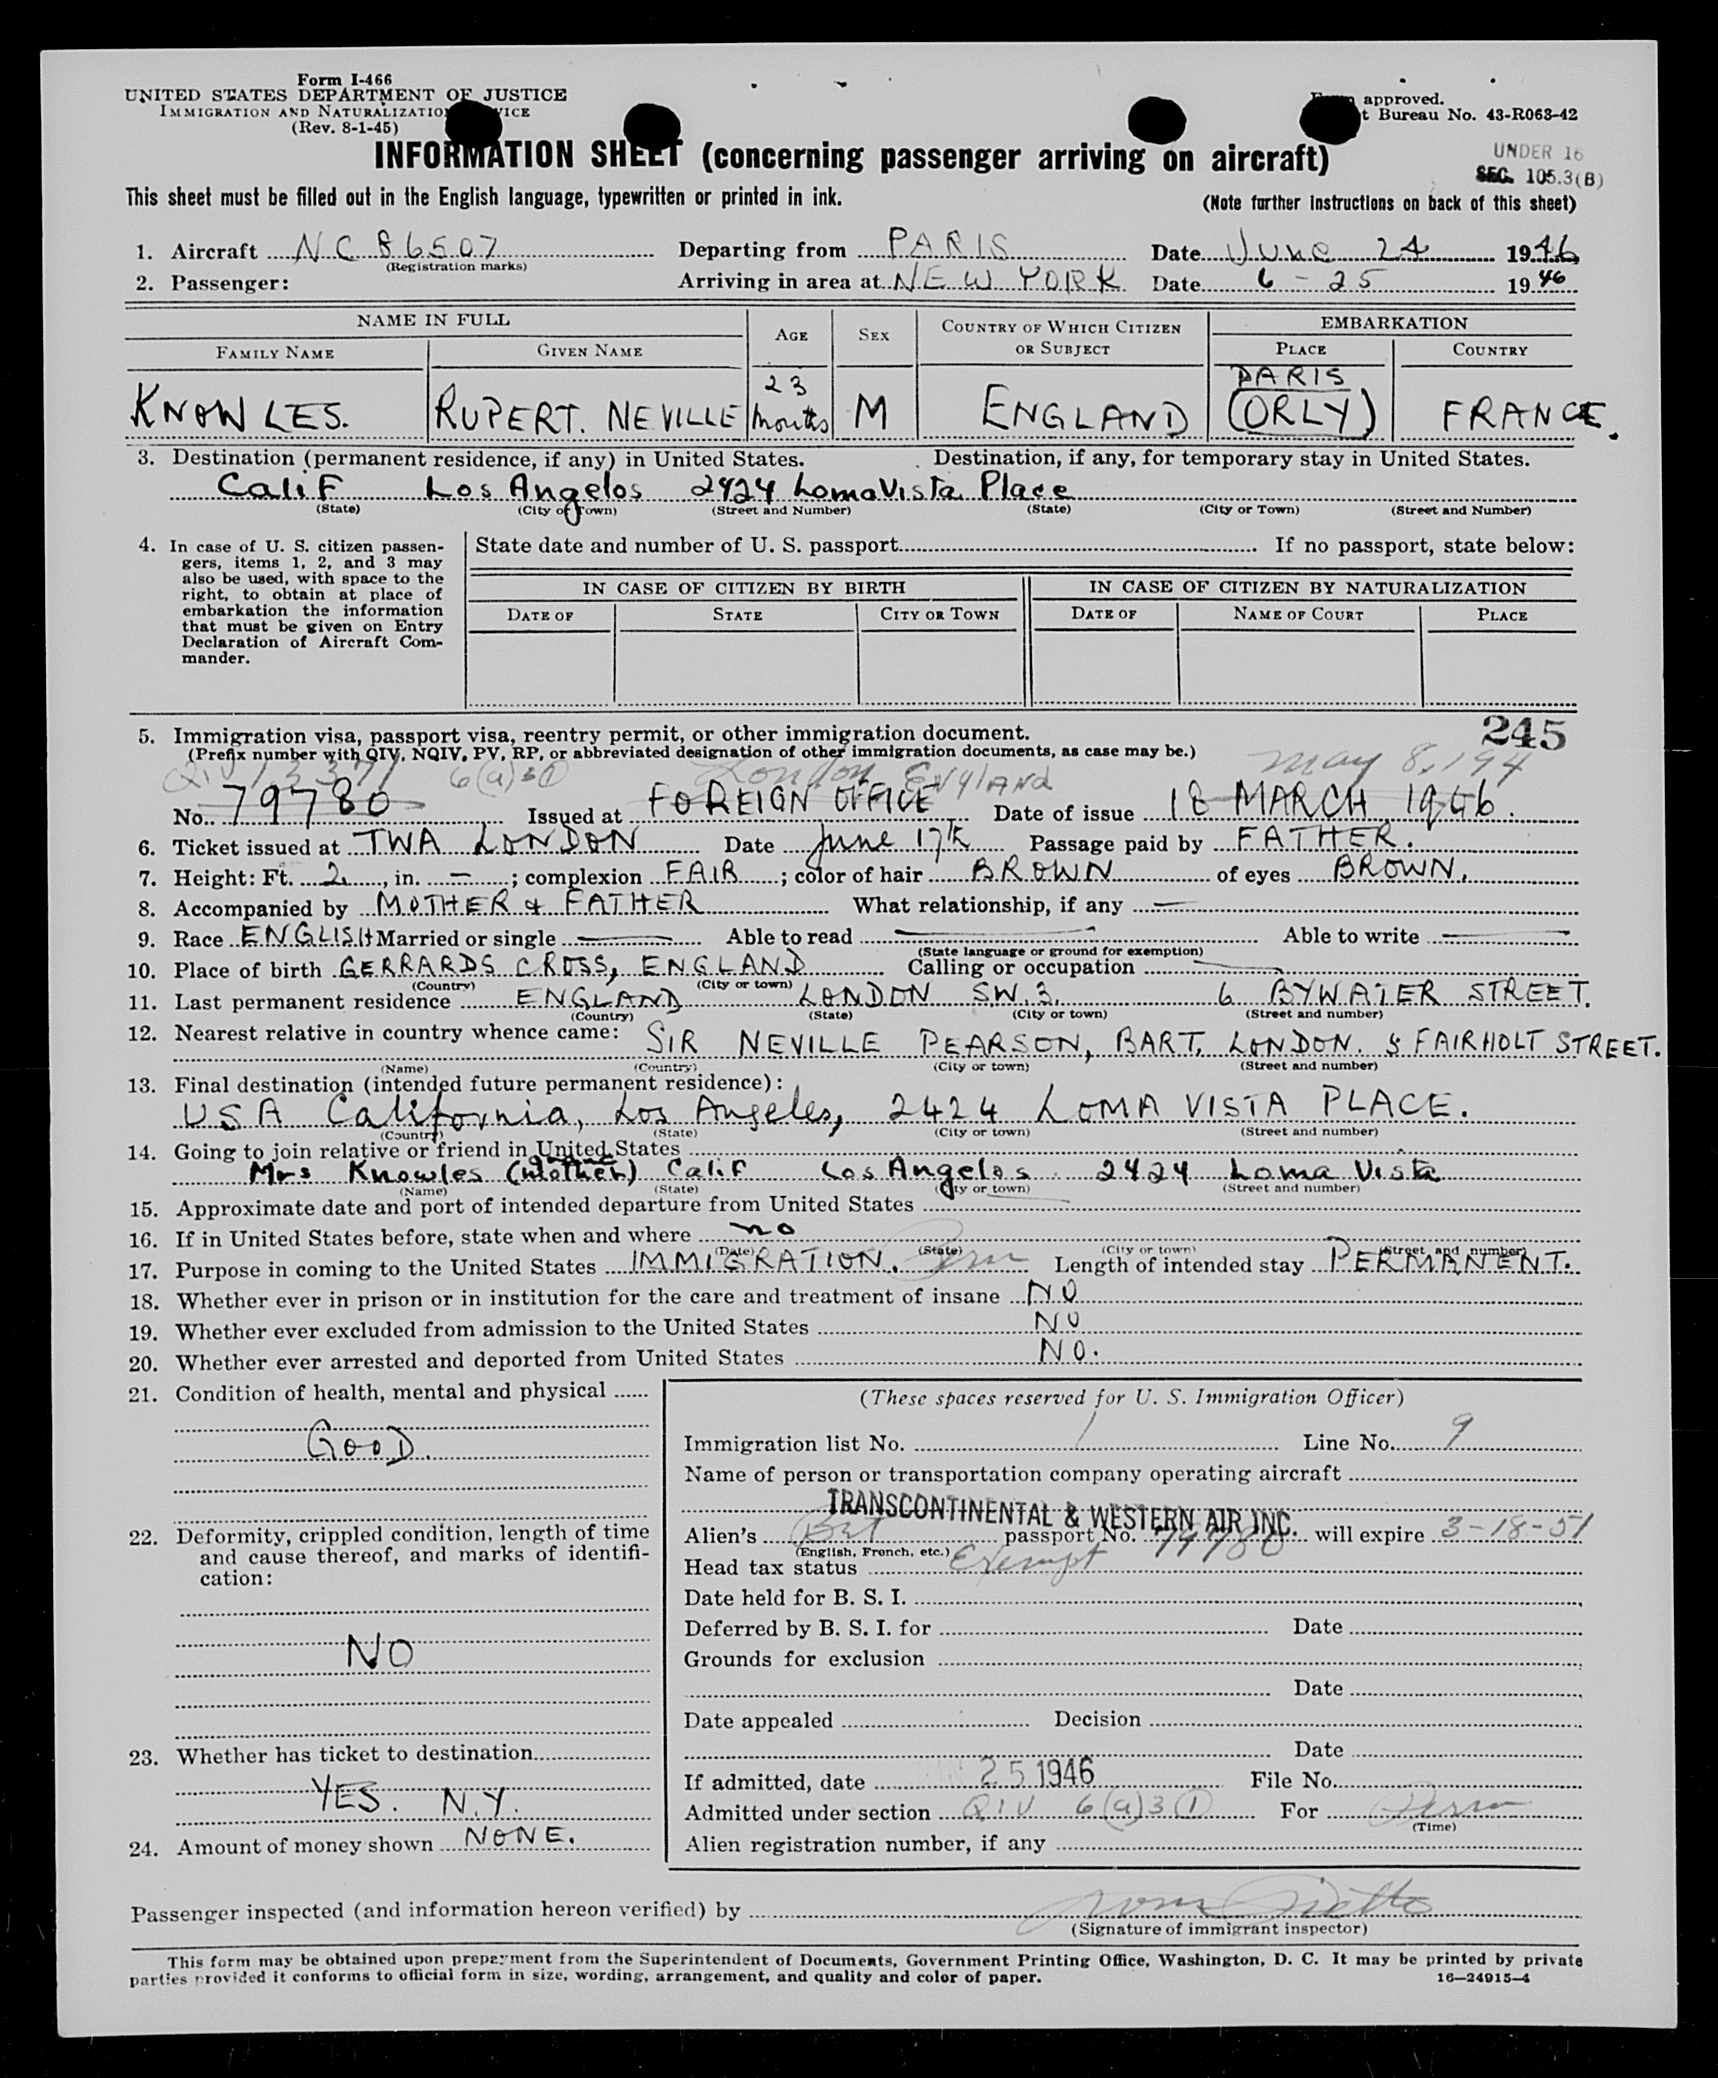 Form I-466
UNITED STATES DEPARTMENT OF JUSTICE
IMMIGRATION AND NATURALIZATION
(Rev. 8-1-45)
approved.
Bureau No. 43-R063-42
INFORMATION SHEET (concerning passenger arriving on aircraft)
UNDER 16
SEC. 105.3(B)
This sheet must be filled out in the English language, typewritten or printed in ink.
(Note further instructions on back of this sheet)
1. Aircraft NC 86507 Departing from PARIS Date June 24 1946
(Registration marks)
2. Passenger: Arriving in area at NEW YORK Date 6-25 1946
NAME IN FULL AGE SEX COUNTRY OF WHICH CITIZEN OR SUBJECT EMBARKATION
FAMILY NAME GIVEN NAME PLACE COUNTRY
KNOWLES. RUPERT. NEVILLE 23 months M ENGLAND PARIS (ORLY) FRANCE.
3. Destination (permanent residence, if any) in United States. Destination, if any, for temporary stay in United States.
Calif Los Angelos 2424 Loma Vista Place
(State) (City or Town) (Street and Number) (State) (City or Town) (Street and Number)
4. In case of U. S. citizen passen-
gers, items 1, 2, and 3 may
also be used, with space to the
right, to obtain at place of
embarkation the information
that must be given on Entry
Declaration of Aircraft Com-
mander.
State date and number of U. S. passport If no passport, state below:
IN CASE OF CITIZEN BY BIRTH IN CASE OF CITIZEN BY NATURALIZATION
DATE OF STATE CITY OR TOWN DATE OF NAME OF COURT PLACE
245
5. Immigration visa, passport visa, reentry permit, or other immigration document.
(Prefix number with QIV, NQIV, PV, RP, or abbreviated designation of other immigration documents, as case may be.)
QIV 13371 6(a)3(1) London England May 8, 194
No. 79780 Issued at FOREIGN OFFICE Date of issue 18 MARCH 1946.
6. Ticket issued at TWA LONDON Date June 17th Passage paid by FATHER.
7. Height: Ft. 2, in. —; complexion FAIR; color of hair BROWN of eyes BROWN.
8. Accompanied by MOTHER & FATHER What relationship, if any —
9. Race ENGLISH Married or single — Able to read — Able to write —
(State language or ground for exemption)
10. Place of birth GERRARDS CROSS, ENGLAND Calling or occupation —
(Country) (City or town)
11. Last permanent residence ENGLAND LONDON S.W.3. 6 BYWATER STREET.
(Country) (State) (City or town) (Street and number)
12. Nearest relative in country whence came: SIR NEVILLE PEARSON, BART. LONDON. 5 FAIRHOLT STREET.
(Name) (Country) (City or town) (Street and number)
13. Final destination (intended future permanent residence):
USA California, Los Angeles, 2424 LOMA VISTA PLACE.
(Country) (State) (City or town) (Street and number)
14. Going to join relative or friend in United States
Mrs Knowles (Mother) Calif Los Angelos 2424 Loma Vista
(Name) (State) (City or town) (Street and number)
15. Approximate date and port of intended departure from United States
16. If in United States before, state when and where no
(Date) (State) (City or town) (Street and number)
17. Purpose in coming to the United States IMMIGRATION. Perm Length of intended stay PERMANENT.
18. Whether ever in prison or in institution for the care and treatment of insane NO
19. Whether ever excluded from admission to the United States NO
20. Whether ever arrested and deported from United States NO.
21. Condition of health, mental and physical
GOOD.
22. Deformity, crippled condition, length of time
and cause thereof, and marks of identifi-
cation:
NO
23. Whether has ticket to destination
YES. N.Y.
24. Amount of money shown NONE.
(These spaces reserved for U. S. Immigration Officer)
Immigration list No. 1 Line No. 9
Name of person or transportation company operating aircraft
TRANSCONTINENTAL & WESTERN AIR INC.
Alien's Brt passport No. 79780 will expire 3-18-51
(English, French, etc.)
Head tax status Exempt
Date held for B. S. I.
Deferred by B. S. I. for Date
Grounds for exclusion
Date
Date appealed Decision
Date
If admitted, date 25 1946 File No.
Admitted under section QIV 6(a)3(1) For Perm
(Time)
Alien registration number, if any
Passenger inspected (and information hereon verified) by
(Signature of immigrant inspector)
This form may be obtained upon prepayment from the Superintendent of Documents, Government Printing Office, Washington, D. C. It may be printed by private
parties provided it conforms to official form in size, wording, arrangement, and quality and color of paper.
16—24915-4